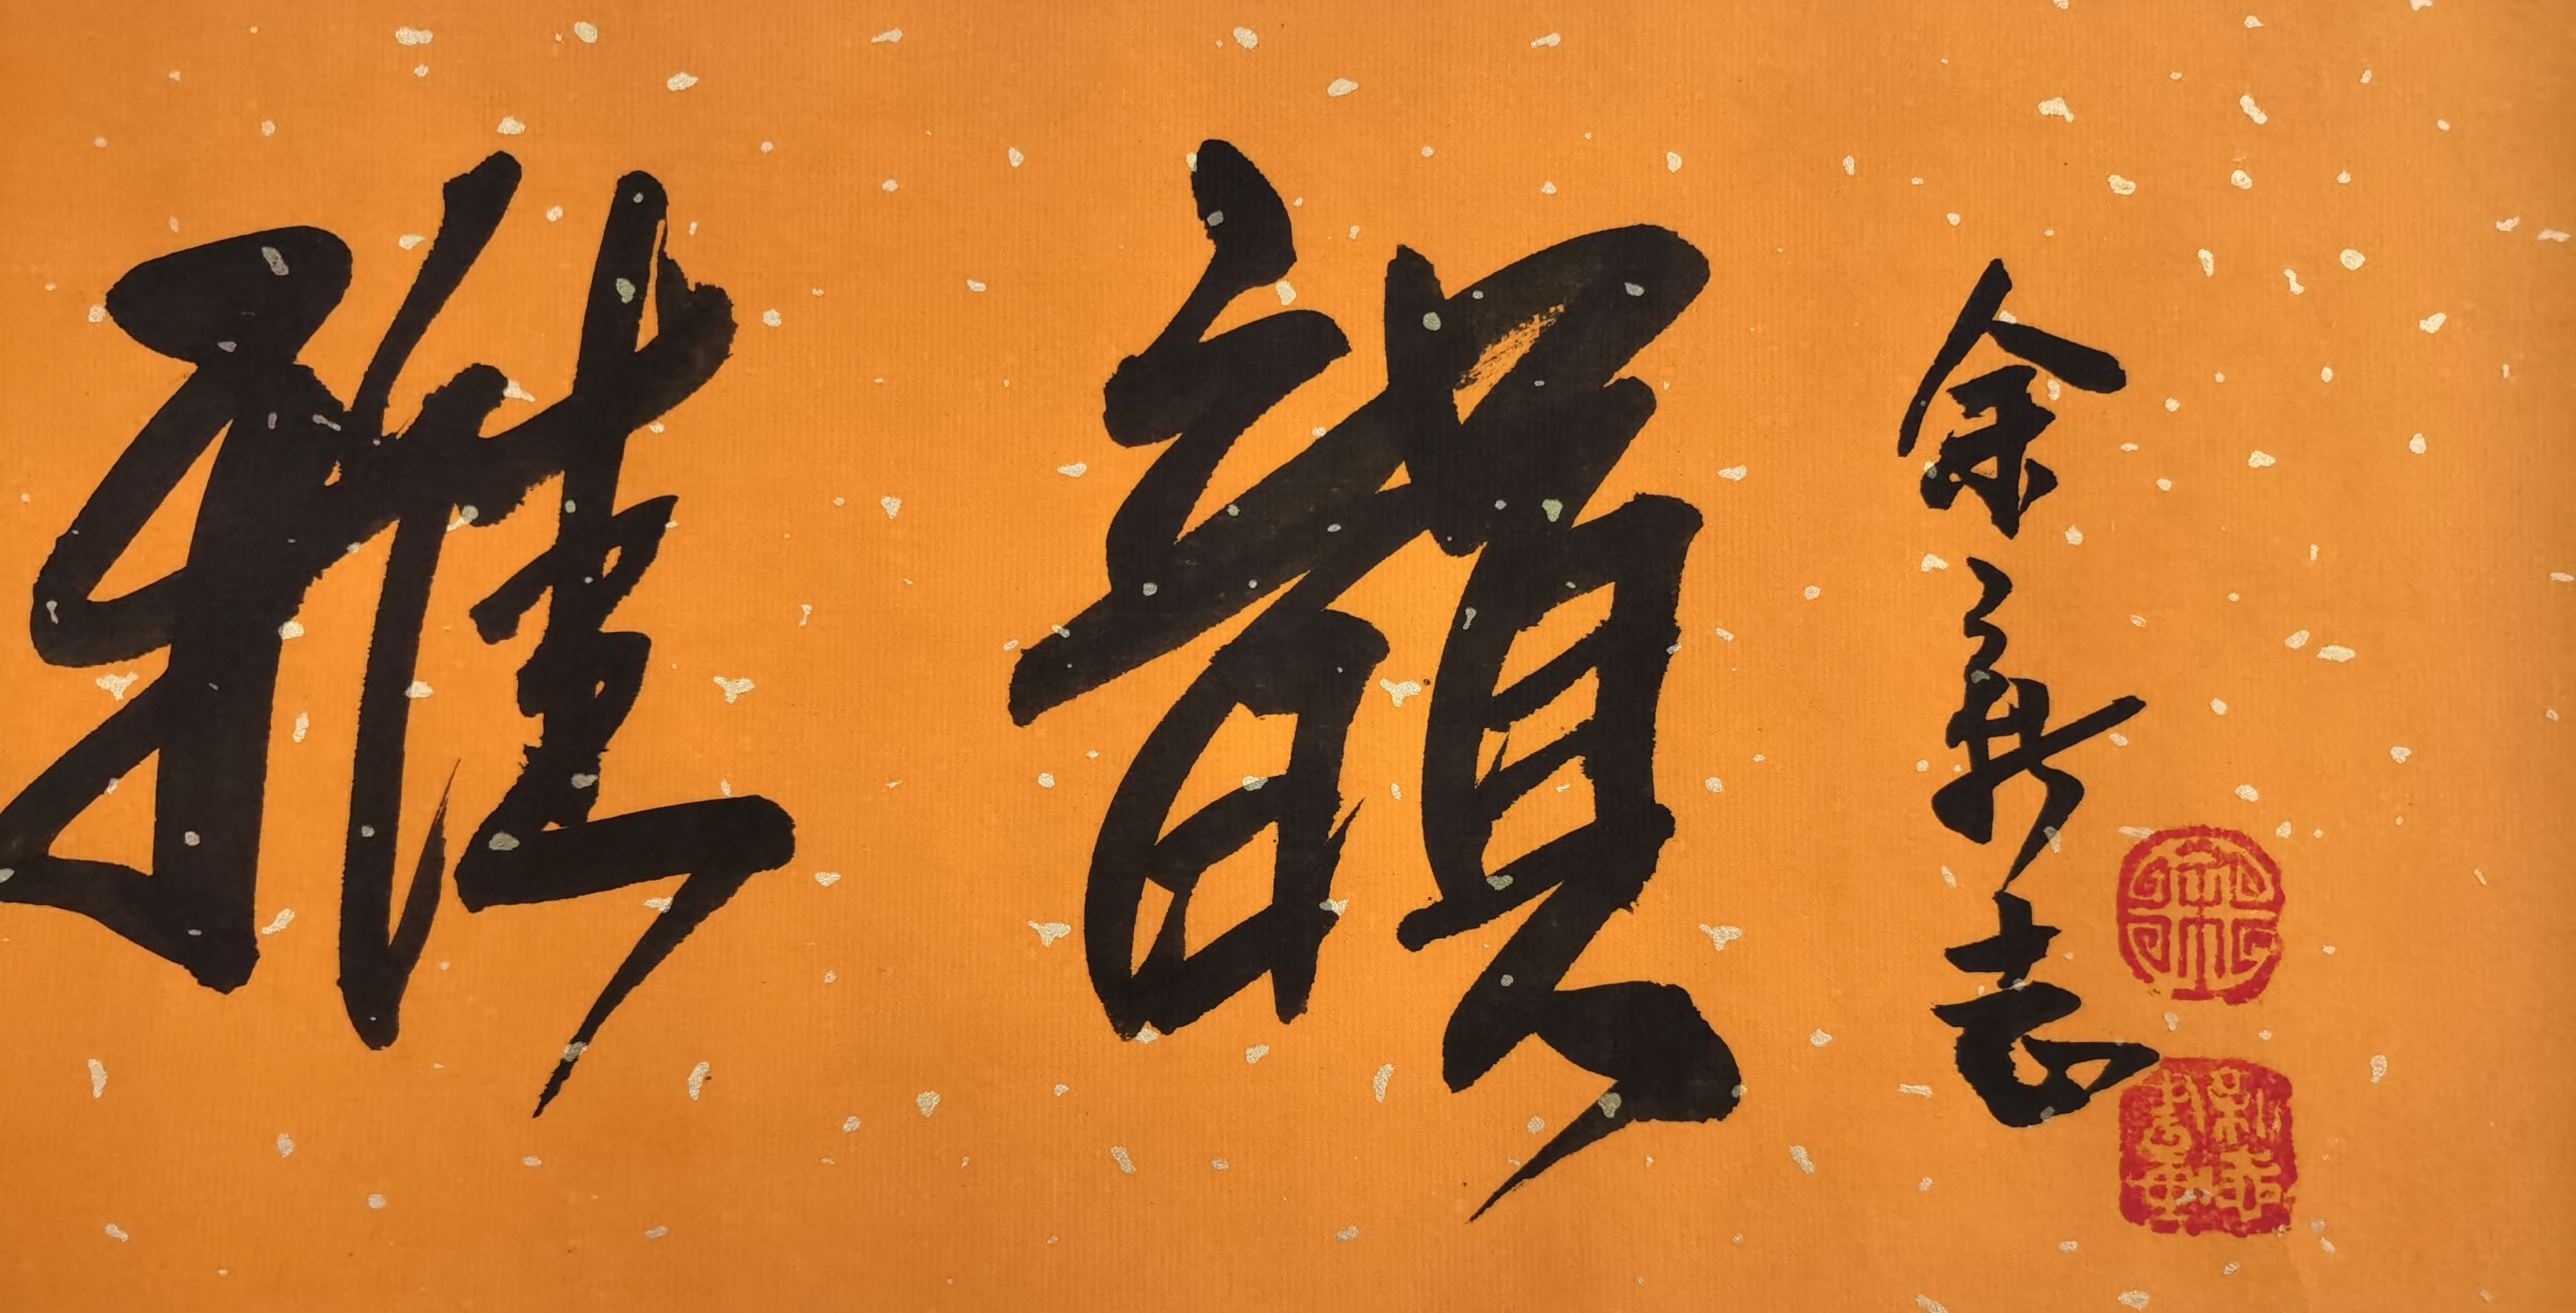 雅韻
余新志